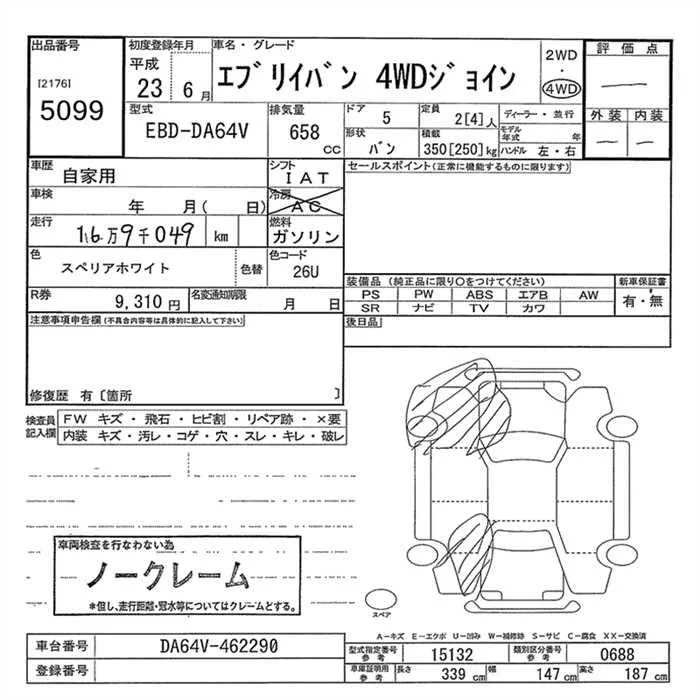 出品番号 初度登録年月 車名・グレード 2WD 評価点
[2176] 平成 エブリイバン 4WDジョイン ・
5099 23 6月 4WD —
型式 排気量 ドア 5 定員 2[4]人 ディーラー・並行 外装 内装
EBD-DA64V 658 cc 形状 バン 積載 350[250]kg モデル年式 年 ハンドル 左・右 — —
車歴 自家用 シフト IAT セールスポイント(正常に機能するものに限ります)
車検 年 月( 日) 冷房 AC
走行 16万9千049 km 燃料 ガソリン
色 スペリアホワイト 色替 色コード 26U
装備品(純正品に限り○をつけてください) 新車保証書
R券 9,310円 名変通知期限 月 日 PS PW ABS エアB AW 有・無
SR ナビ TV カワ
注意事項申告欄(不具合内容等は具体的に記入して下さい) 後日品
修復歴 有〔箇所 〕
検査員記入欄 FW キズ・飛石・ヒビ割・リペア跡・×要
内装 キズ・汚レ・コゲ・穴・スレ・キレ・破レ
車両検査を行なわない為
ノークレーム
*但し、走行距離・冠水等についてはクレームとする。
スペア
A-キズ E-エクボ U-凹み W-補修跡 S-サビ C-腐食 XX-交換済
車台番号 DA64V-462290 型式指定番号参考 15132 類別区分番号参考 0688
登録番号 車庫証明用参考 長さ 339cm 幅 147cm 高さ 187cm